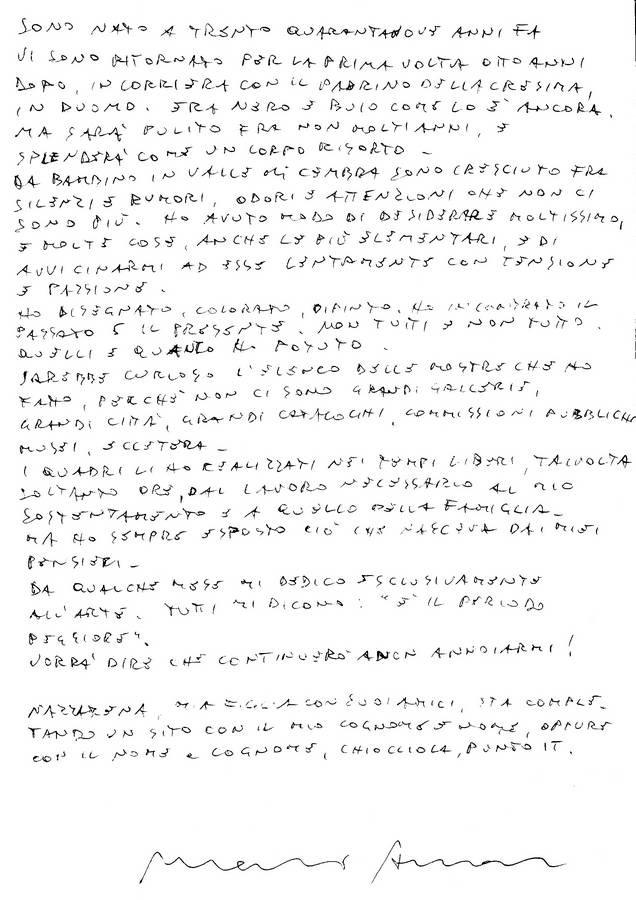 SONO NATO A TRENTO QUARANTANOVE ANNI FA
VI SONO RITORNATO PER LA PRIMA VOLTA OTTO ANNI
DOPO, IN CORRIERA CON IL PADRINO DELLA CRESIMA,
IN DUOMO. ERA NERO E BUIO COME LO E' ANCORA.
MA SARA' PULITO FRA NON MOLTI ANNI, E
SPLENDERA' COME UN CORPO RISORTO -
DA BAMBINO IN VALLE DI CEMBRA SONO CRESCIUTO FRA
SILENZI E RUMORI, ODORI E ATTENZIONI CHE NON CI
SONO PIÙ. HO AVUTO MODO DI DESIDERARE MOLTISSIMO,
E MOLTE COSE, ANCHE LE PIÙ ELEMENTARI, E DI
AVVICINARMI AD ESSE LENTAMENTE CON TENSIONE
E PASSIONE.
HO DISEGNATO, COLORATO, DIPINTO. HO INCONTRATO IL
PASSATO E IL PRESENTE. NON TUTTI E NON TUTTO.
QUELLI E QUANTO HO POTUTO.
SAREBBE CURIOSO L'ELENCO DELLE MOSTRE CHE HO
FATTO, PERCHE' NON CI SONO GRANDI GALLERIE,
GRANDI CITTA', GRANDI CATALOGHI, COMMISSIONI PUBBLICHE
MUSEI, ECCETERA -
I QUADRI LI HO REALIZZATI NEI TEMPI LIBERI, TALVOLTA
SOLTANTO ORE, DAL LAVORO NECESSARIO AL MIO
SOSTENTAMENTO E A QUELLO DELLA FAMIGLIA -
MA HO SEMPRE ESPOSTO CIÒ CHE NASCEVA DAI MIEI
PENSIERI -
DA QUALCHE MESE MI DEDICO ESCLUSIVAMENTE
ALL'ARTE. TUTTI MI DICONO: "E' IL PERIODO
PEGGIORE".
VORRA' DIRE CHE CONTINUERÒ A NON ANNOIARMI!
NAZZARENA, MIA FIGLIA CON SUOI AMICI, STA COMPLE-
TANDO UN SITO CON IL MIO COGNOME E NOME, OPPURE
CON IL NOME E COGNOME, CHIOCCIOLA, PUNTO IT.